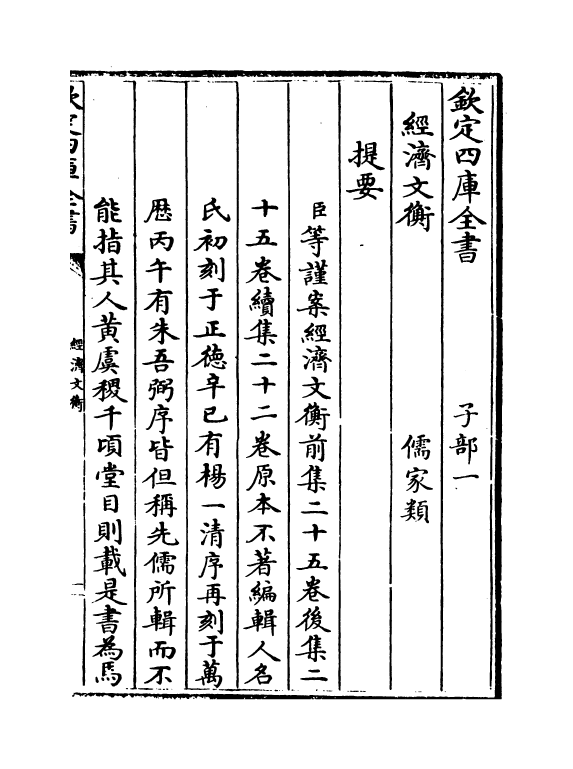 欽定四庫全書　子部一
經濟文衡　儒家類
提要
臣等謹案經濟文衡前集二十五卷後集二
十五卷續集二十二卷原本不著編輯人名
氏初刻于正德辛巳有楊一清序再刻于萬
歷丙午有朱吾弼序皆但稱先儒所輯而不
能指其人黄虞稷千頃堂目則載是書為馬
欽定四庫全書
經濟文衡
一